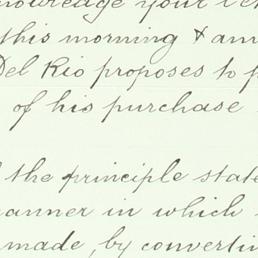 nowledge your
this morning &
Del Rio proposes to
of his purchase
the principle state
manner in which
made, by converting